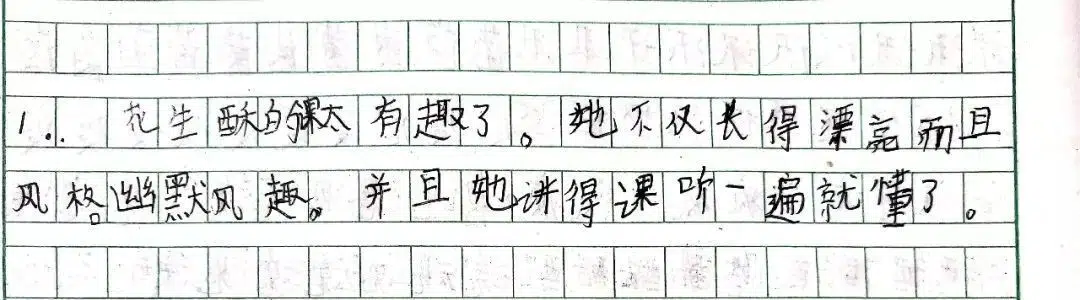 1.. 花生酥的课太有趣了。她不仅长得漂亮而且
风格幽默风趣。并且她讲得课听一遍就懂了。